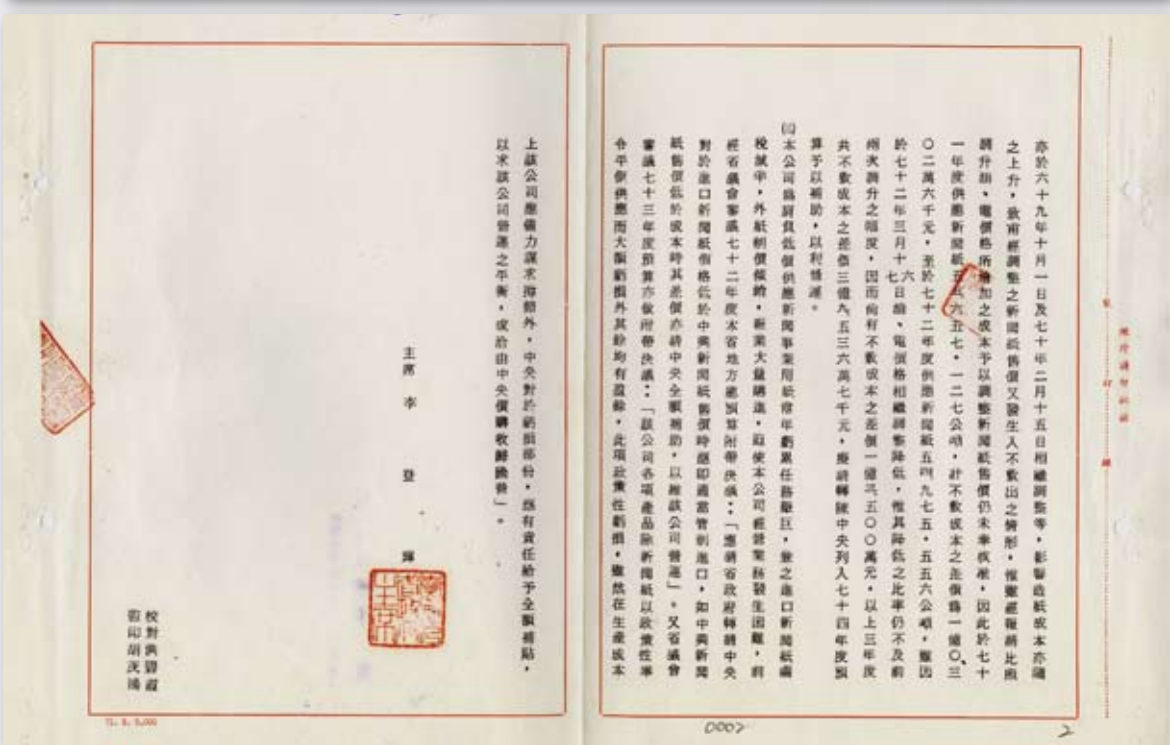 亦於六十九年十月一日及七十年二月十五日相繼調整等，影響造紙成本亦隨
之上升，致甫經調整之新聞紙售價又發生入不敷出之情形，惟雖經報請比照
調升油、電價格所增加之成本予以調整新聞紙售價仍未奉核准，因此於七十
一年度供應新聞紙五五六五七・一二七公噸，計不敷成本之差價為一億〇三
〇二萬六千元，至於七十二年度供應新聞紙五四九七五・五五六公噸，雖因
於七十二年三月十六七日油、電價格相繼調整降低，惟其降低之比率仍不及前
兩次調升之幅度，因而尚有不敷成本之差價一億三五〇〇萬元，以上三年度
共不敷成本之差價三億九五三六萬七千元，擬請轉陳中央列入七十四年度預
算予以補助，以利營運。
本公司為肩負低價供應新聞事業用紙常年虧累任務艱巨，兼之進口新聞紙關
稅減半，外紙削價傾銷，報業大量購進，迫使本公司經營業務發生困難，前
經省議會審議七十二年度本省地方總預算附帶決議：「應請省政府轉請中央
對於進口新聞紙價格低於中興新聞紙售價時應即適當管制進口，如中興新聞
紙售價低於成本時其差價亦請中央全額補助，以維該公司營運」。又省議會
審議七十三年度預算亦做附帶決議：「該公司各項產品除新聞紙以政策性奉
令平價供應而大額虧損外其餘均有盈餘，此項政策性虧損，雖然在生產成本
0002
2
上該公司應儘力謀求抑低外，中央對於虧損部份，應有責任給予全額補貼，
以求該公司營運之平衡，或洽由中央價購收歸國營」。
主席 李 登 輝
校對洪碧霞
監印胡茂鴻
71. 8. 5,000